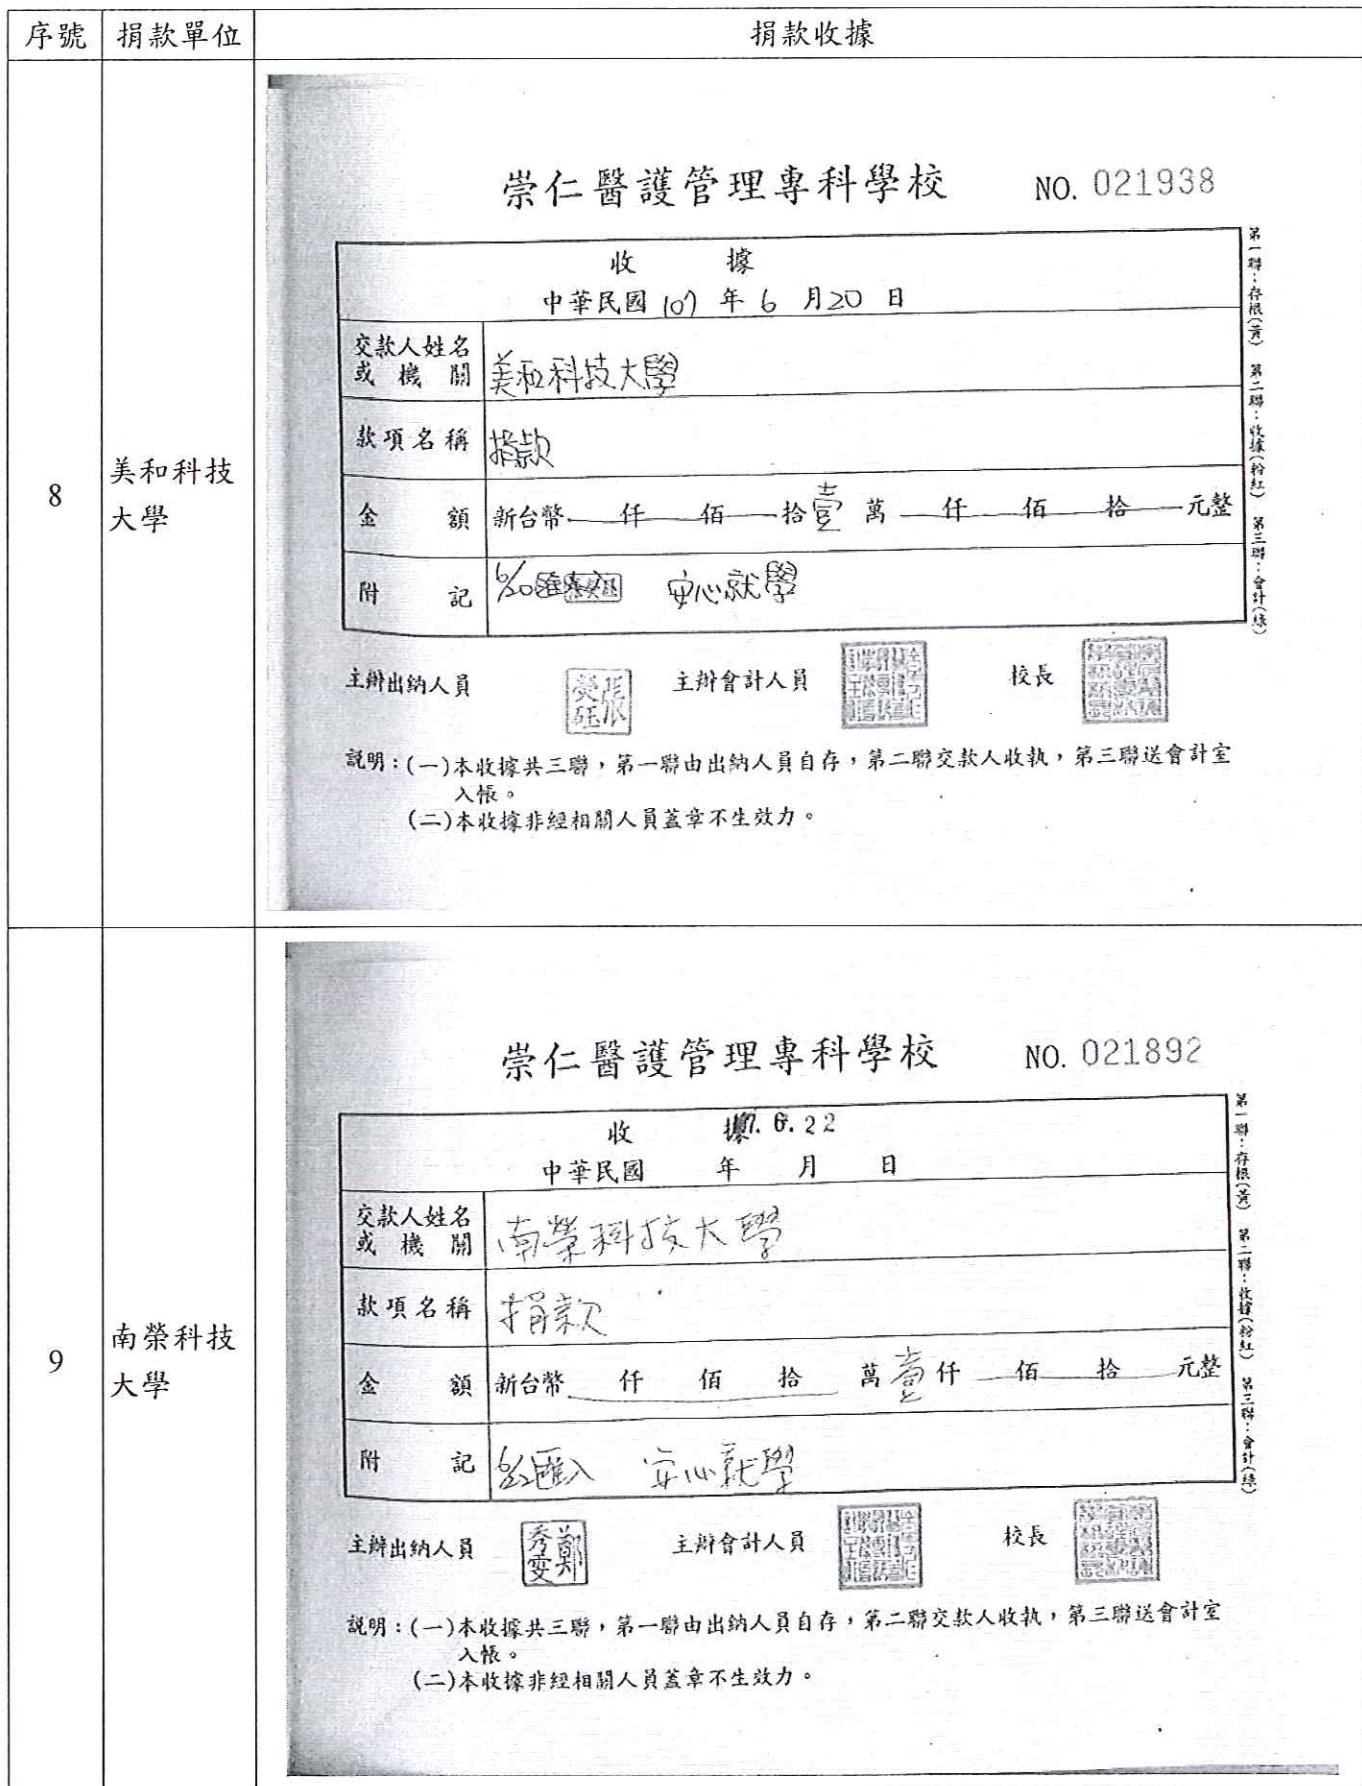 序號 捐款單位 捐款收據
8
美和科技
大學
崇仁醫護管理專科學校 NO. 021938
收 據
中華民國 107 年 6 月 20 日
交款人姓名
或機關
美和科技大學
款項名稱 捐款
金額 新台幣 仟 佰 拾壹萬 仟 佰 拾 元整
附記 6/20 安心就學
主辦出納人員 主辦會計人員 校長
說明：(一)本收據共三聯，第一聯由出納人員自存，第二聯交款人收執，第三聯送會計室
入帳。
(二)本收據非經相關人員蓋章不生效力。
第一聯：存根(黃) 第二聯：收據(粉紅) 第三聯：會計(綠)
9
南榮科技
大學
崇仁醫護管理專科學校 NO. 021892
收 據 107. 6. 22
中華民國 年 月 日
交款人姓名
或機關
南榮科技大學
款項名稱 捐款
金額 新台幣 仟 佰 拾 萬壹仟 佰 拾 元整
附記 6/22匯入 安心就學
主辦出納人員 鄭秀雯 主辦會計人員 校長
說明：(一)本收據共三聯，第一聯由出納人員自存，第二聯交款人收執，第三聯送會計室
入帳。
(二)本收據非經相關人員蓋章不生效力。
第一聯：存根(黃) 第二聯：收據(粉紅) 第三聯：會計(綠)